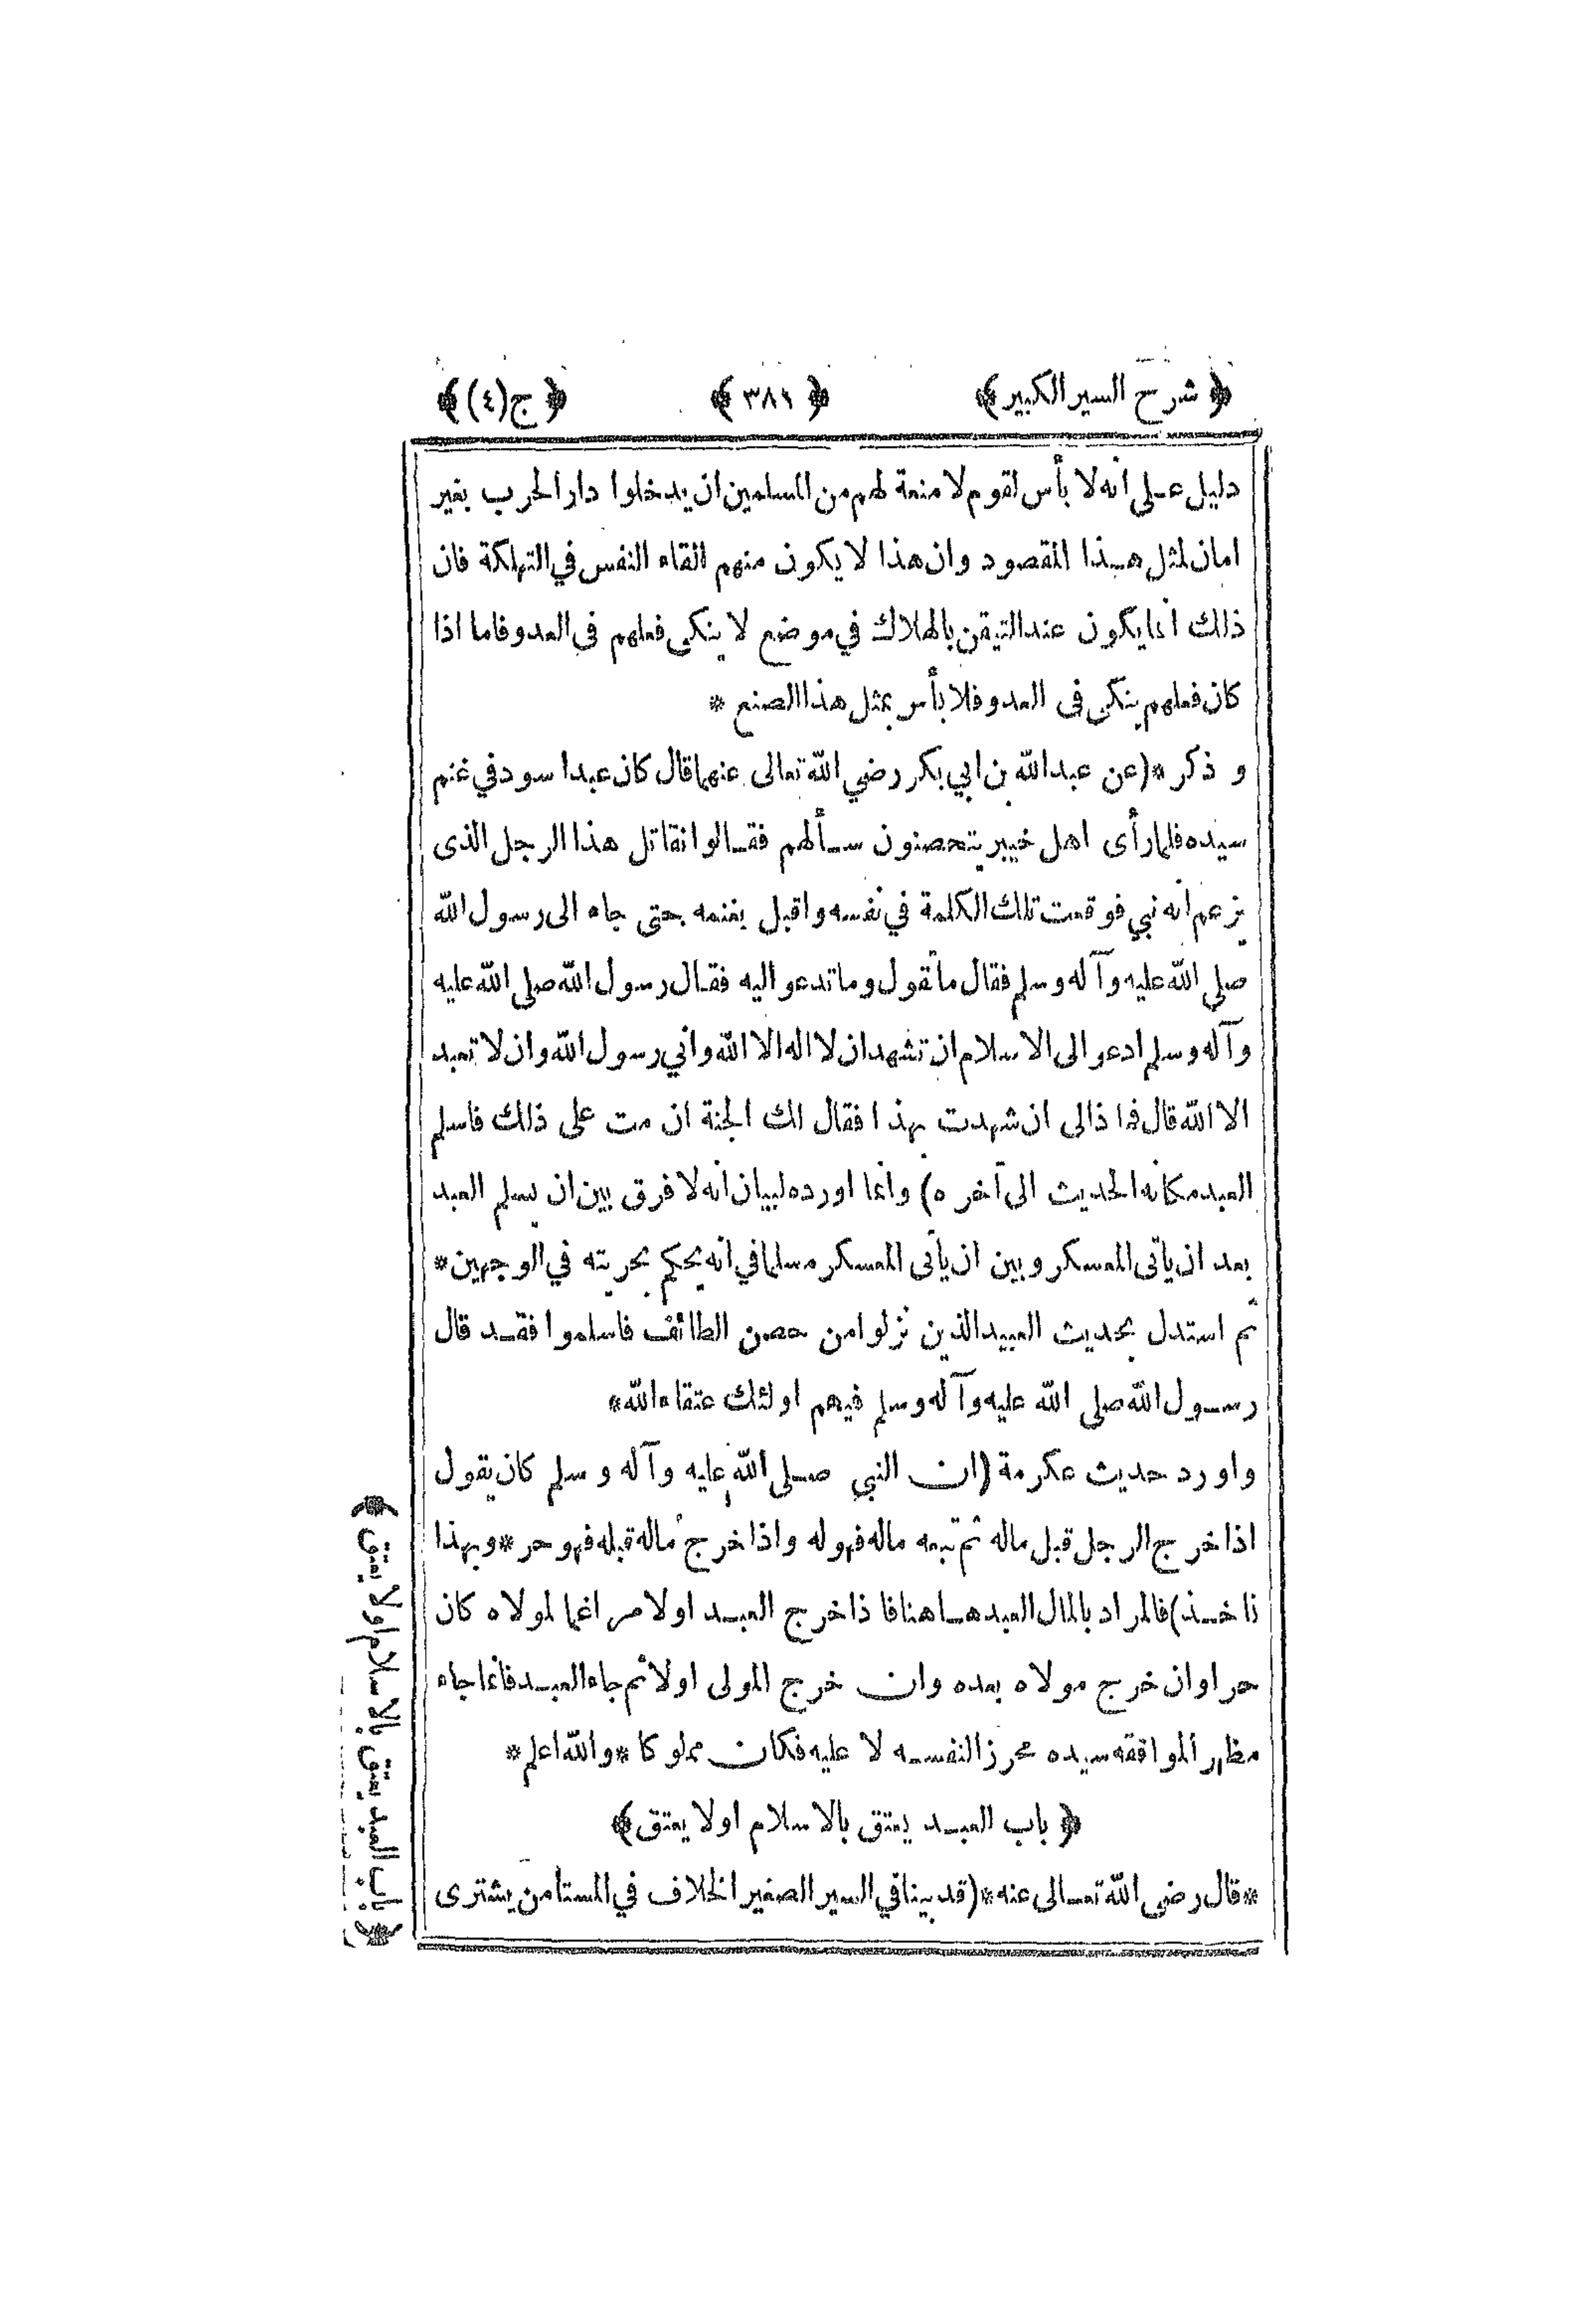 ﴿ شرح السير الكبير ﴾ ﴿ ٣٨١ ﴾ ﴿ ج (٤) ﴾
دليل على انه لا بأس لقوم لا منعة لهم من المسلمين ان يدخلوا دار الحرب بغير
امان لمثل هذا المقصود وان هذا لا يكون منهم القاء النفس في التهلكة فان
ذلك انما يكون عند التيقن بالهلاك في موضع لا ينكى فعلهم فى العدو فاما اذا
كان فعلهم ينكى فى العدو فلا بأس بمثل هذا الصنع *
و ذكر *(عن عبد الله بن ابي بكر رضي الله تعالى عنهما قال كان عبد اسود في غنم
سيده فلما رأى اهل خيبر يتحصنون سألهم فقالوا نقاتل هذا الرجل الذى
يزعم انه نبي فوقعت تلك الكلمة في نفسه واقبل بغنمه حتى جاء الى رسول الله
صلى الله عليه وآله وسلم فقال ما تقول وما تدعو اليه فقال رسول الله صلى الله عليه
وآله وسلم ادعو الى الاسلام ان تشهد ان لا اله الا الله واني رسول الله وان لا تعبد
الا الله قال فما ذا لى ان شهدت بهذا فقال لك الجنة ان مت على ذلك فاسلم
العبد مكانه الحديث الى آخره) وانما اورده لبيان انه لا فرق بين ان يسلم العبد
بعد ان يأتى المعسكر وبين ان يأتى المعسكر مسلما في انه يحكم بحريته في الوجهين *
ثم استدل بحديث العبيد الذين نزلوا من حصن الطائف فاسلموا فقد قال
رسول الله صلى الله عليه وآله وسلم فيهم اولئك عتقاء الله *
واورد حديث عكرمة (ان النبي صلى الله عليه وآله وسلم كان يقول
اذا خرج الرجل قبل ماله ثم تبعه ماله فهو له واذا خرج ماله قبله فهو حر * وبهذا
نأخذ) فالمراد بالمال العبد هاهنا فاذا خرج العبد اولا مراغما لمولاه كان
حرا وان خرج مولاه بعده وان خرج المولى اولا ثم جاء العبد فانما جاء
مظهر الموافقه سيده محرزا لنفسه لا عليه فكان مملوكا * والله اعلم *
﴿ باب العبد يعتق بالاسلام او لا يعتق ﴾
* قال رضى الله تعالى عنه *(قد بينا في السير الصغير الخلاف في المستأمن يشترى
﴿ باب العبد يعتق بالاسلام او لا يعتق ﴾